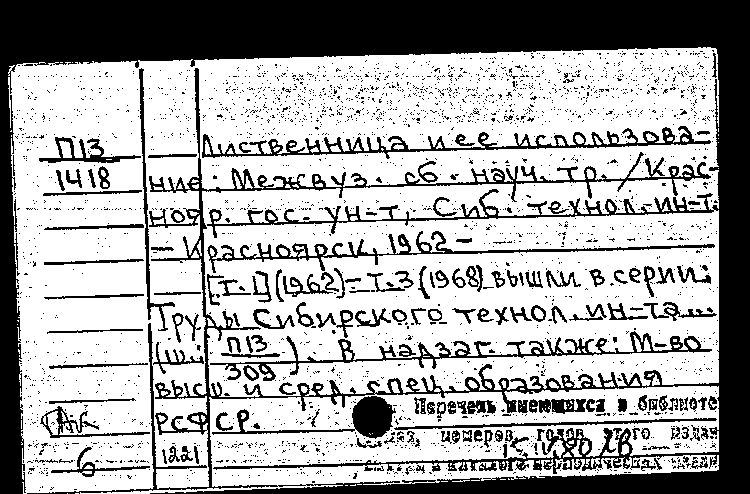 П13
1418
Лиственница и ее использова-
ние: Межвуз. сб. науч. тр. / Крас-
нояр. гос. ун-т, Сиб. технол. ин-т.
– Красноярск, 1962 –
[Т. 1] (1962) – Т. 3 (1968) вышли в серии:
Труды Сибирского технол. ин-та...
(ш: П13/309). В надзаг. также: М-во
высш. и сред. спец. образования
РСФСР.
Перечень имеющихся в библиоте
номеров, годов этого издан
15.IV.80
смотри в каталоге периодических издани
6
1221